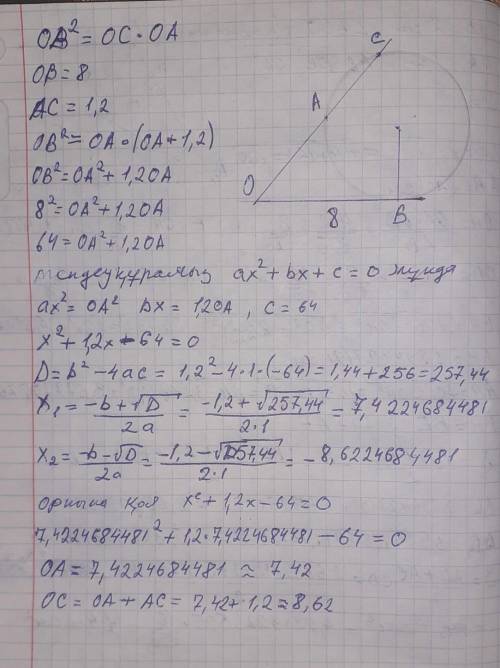 OB² = OC · OA
OB = 8
AC = 1,2
OB² = OA · (OA + 1,2)
OB² = OA² + 1,2OA
8² = OA² + 1,2OA
64 = OA² + 1,2OA
C
A
O
8
B
теңдеу құрамыз ax² + bx + c = 0
ax² = OA² bx = 1,2OA , c = 64
x² + 1,2x - 64 = 0
D = b² - 4ac = 1,2² - 4·1·(-64) = 1,44 + 256 = 257,44
X₁ = (-b + √D)/2a = (-1,2 + √257,44)/2·1 = 7,4224684481
X₂ = (-b - √D)/2a = (-1,2 - √257,44)/2·1 = -8,6224684481
орнына қоя x² + 1,2x - 64 = 0
7,4224684481² + 1,2·7,4224684481 - 64 = 0
OA = 7,4224684481 ≈ 7,42
OC = OA + AC = 7,42 + 1,2 = 8,62